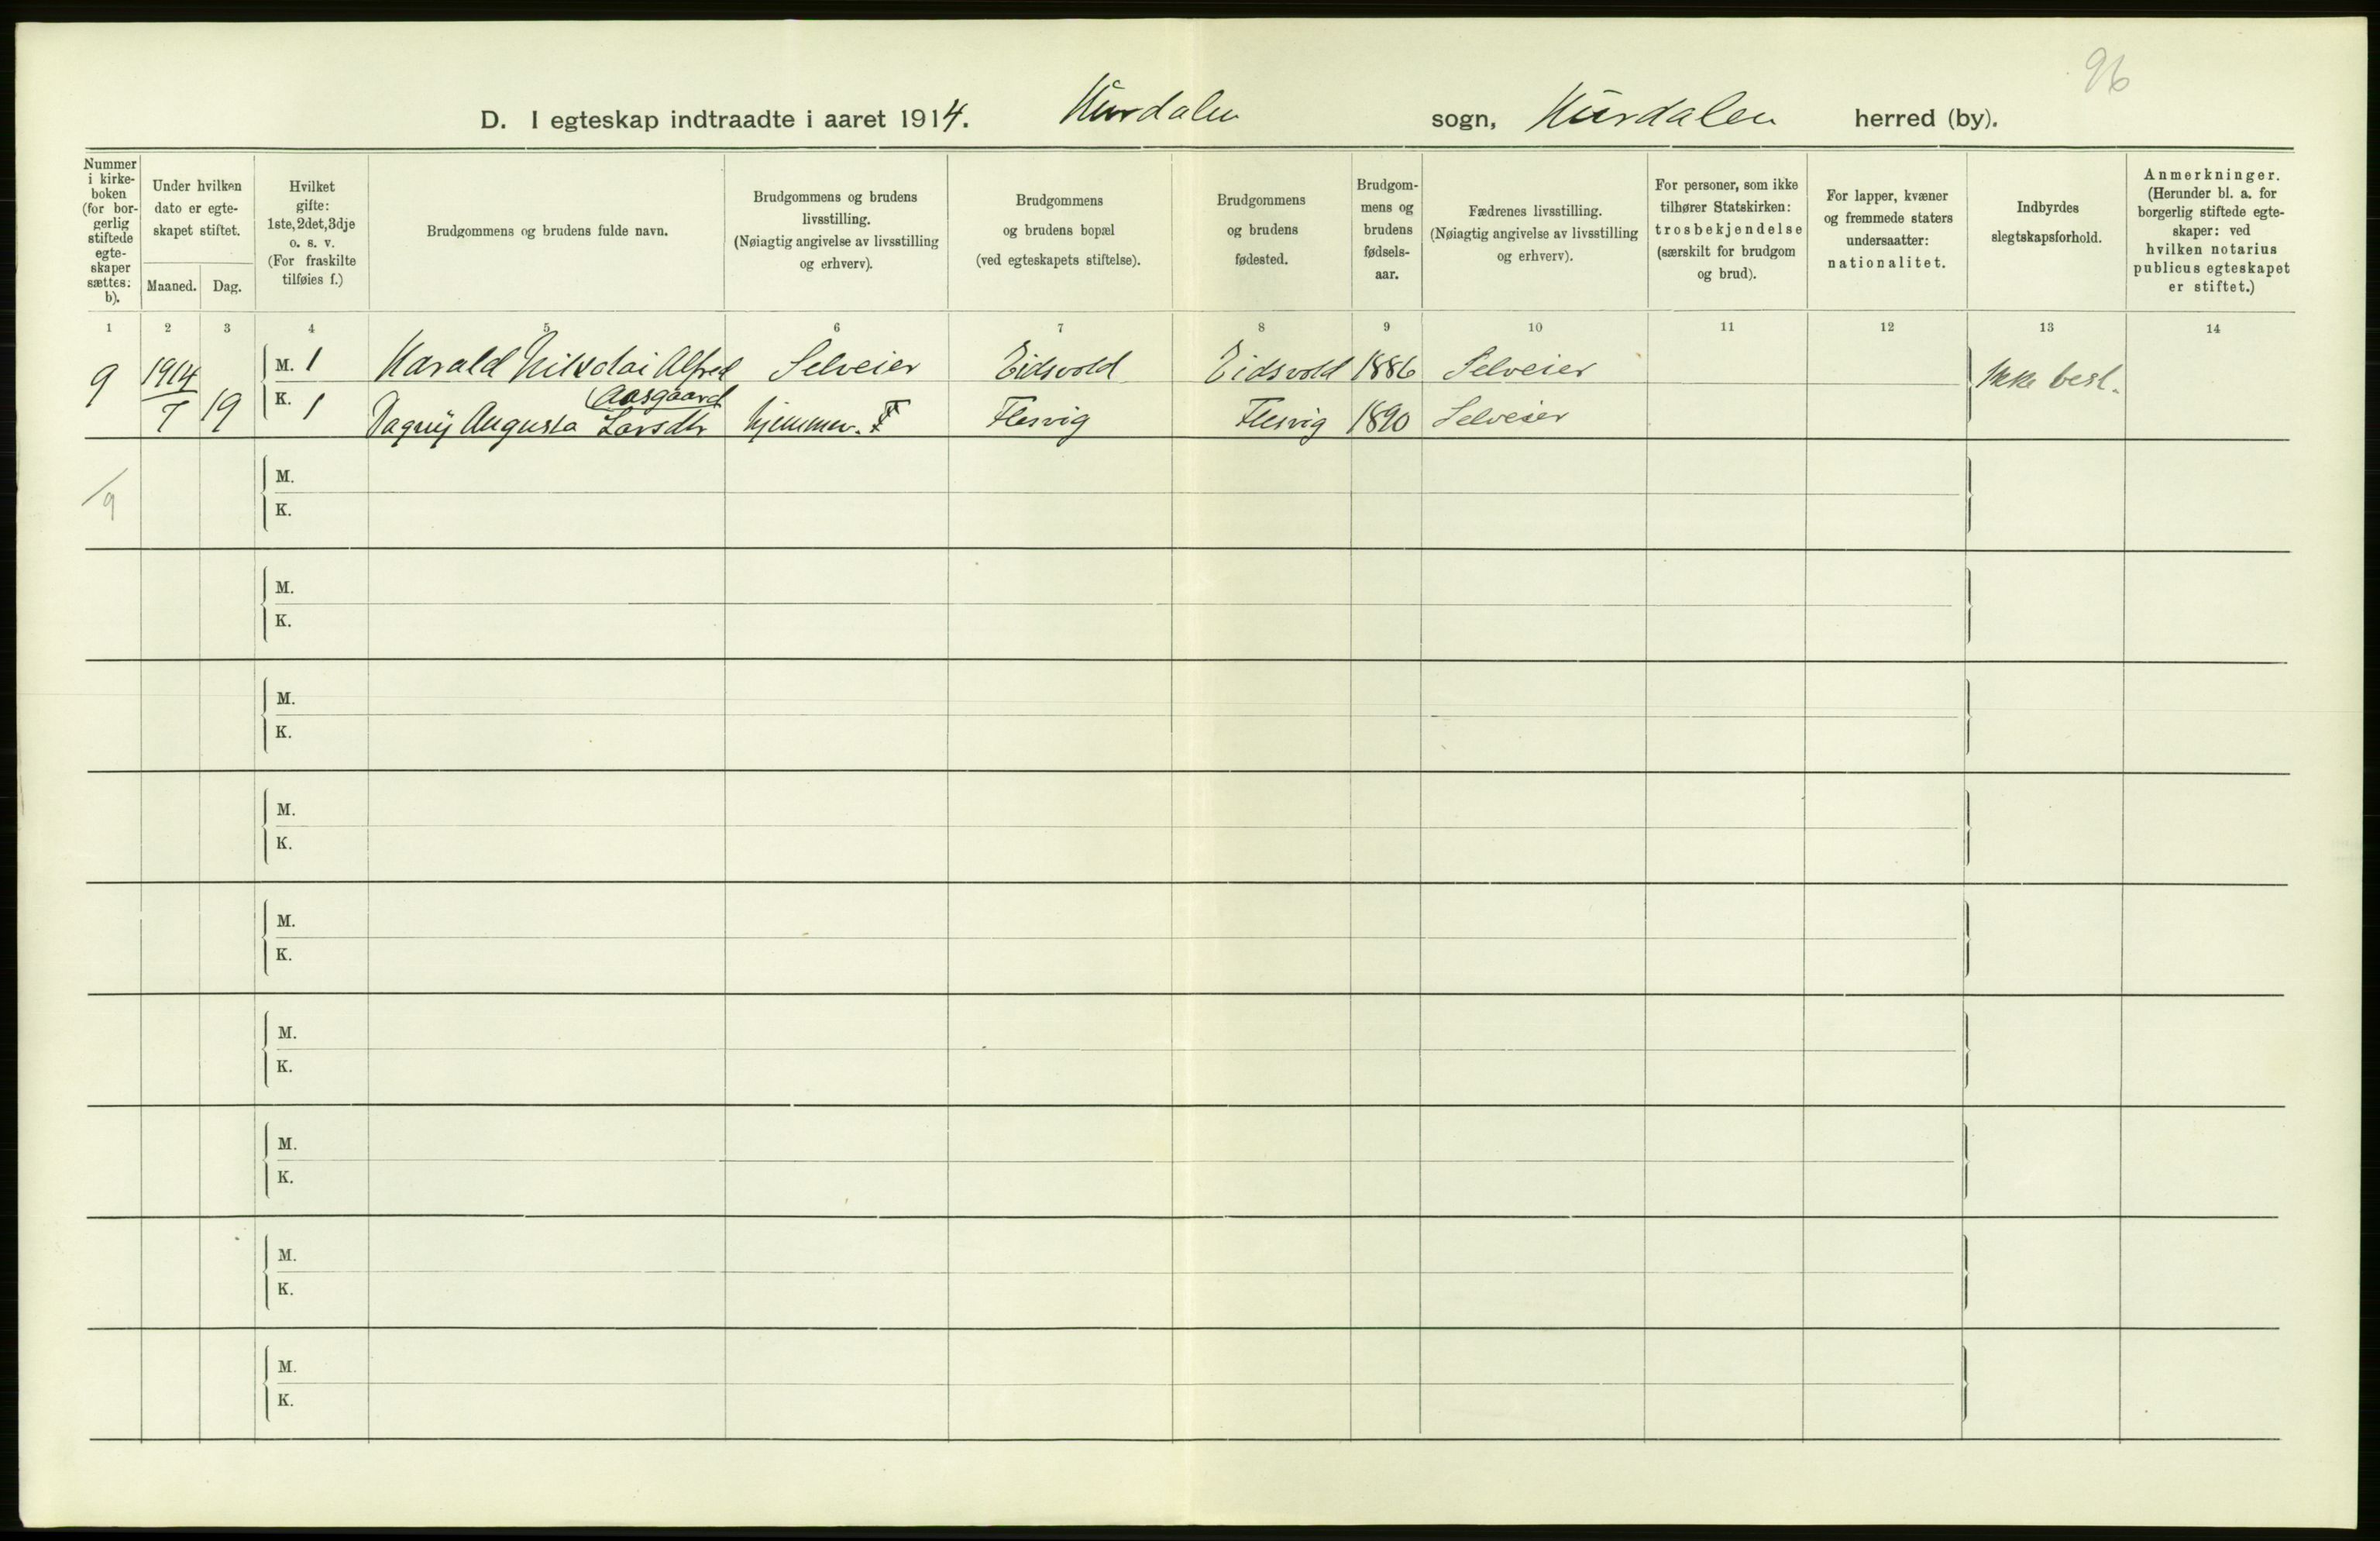 96
D. I egteskap indtraadte i aaret 1914. Hurdalen sogn, Hurdalen herred (by).
Nummer i kirke- boken (for bor- gerlig stiftede egte- skaper sættes: b).
Under hvilken dato er egte- skapet stiftet.
Maaned. Dag.
Hvilket gifte: 1ste, 2det, 3dje o. s. v. (For fraskilte tilføies f.)
Brudgommens og brudens fulde navn.
Brudgommens og brudens livsstilling. (Nøiagtig angivelse av livsstilling og erhverv).
Brudgommens og brudens bopæl (ved egteskapets stiftelse).
Brudgommens og brudens fødested.
Brudgom- mens og brudens fødsels- aar.
Fædrenes livsstilling. (Nøiagtig angivelse av livsstilling og erhverv).
For personer, som ikke tilhører Statskirken: trosbekjendelse (særskilt for brudgom og brud).
For lapper, kvæner og fremmede staters undersaatter: nationalitet.
Indbyrdes slegtskapsforhold.
Anmerkninger. (Herunder bl. a. for borgerlig stiftede egte- skaper: ved hvilken notarius publicus egteskapet er stiftet.)
1 2 3 4 5 6 7 8 9 10 11 12 13 14
9 1914 M. 1 Harald Nikolai Alfred Selveier Eidsvold Eidsvold 1886 Selveier Ikke besl.
Aasgaard
7 19 K. 1 Dagny Augusta Larsdtr hjemmev. Flesvig Flesvig 1890 Selveier
M.
/9
K.
M.
K.
M.
K.
M.
K.
M.
K.
M.
K.
M.
K.
M.
K.
M.
K.